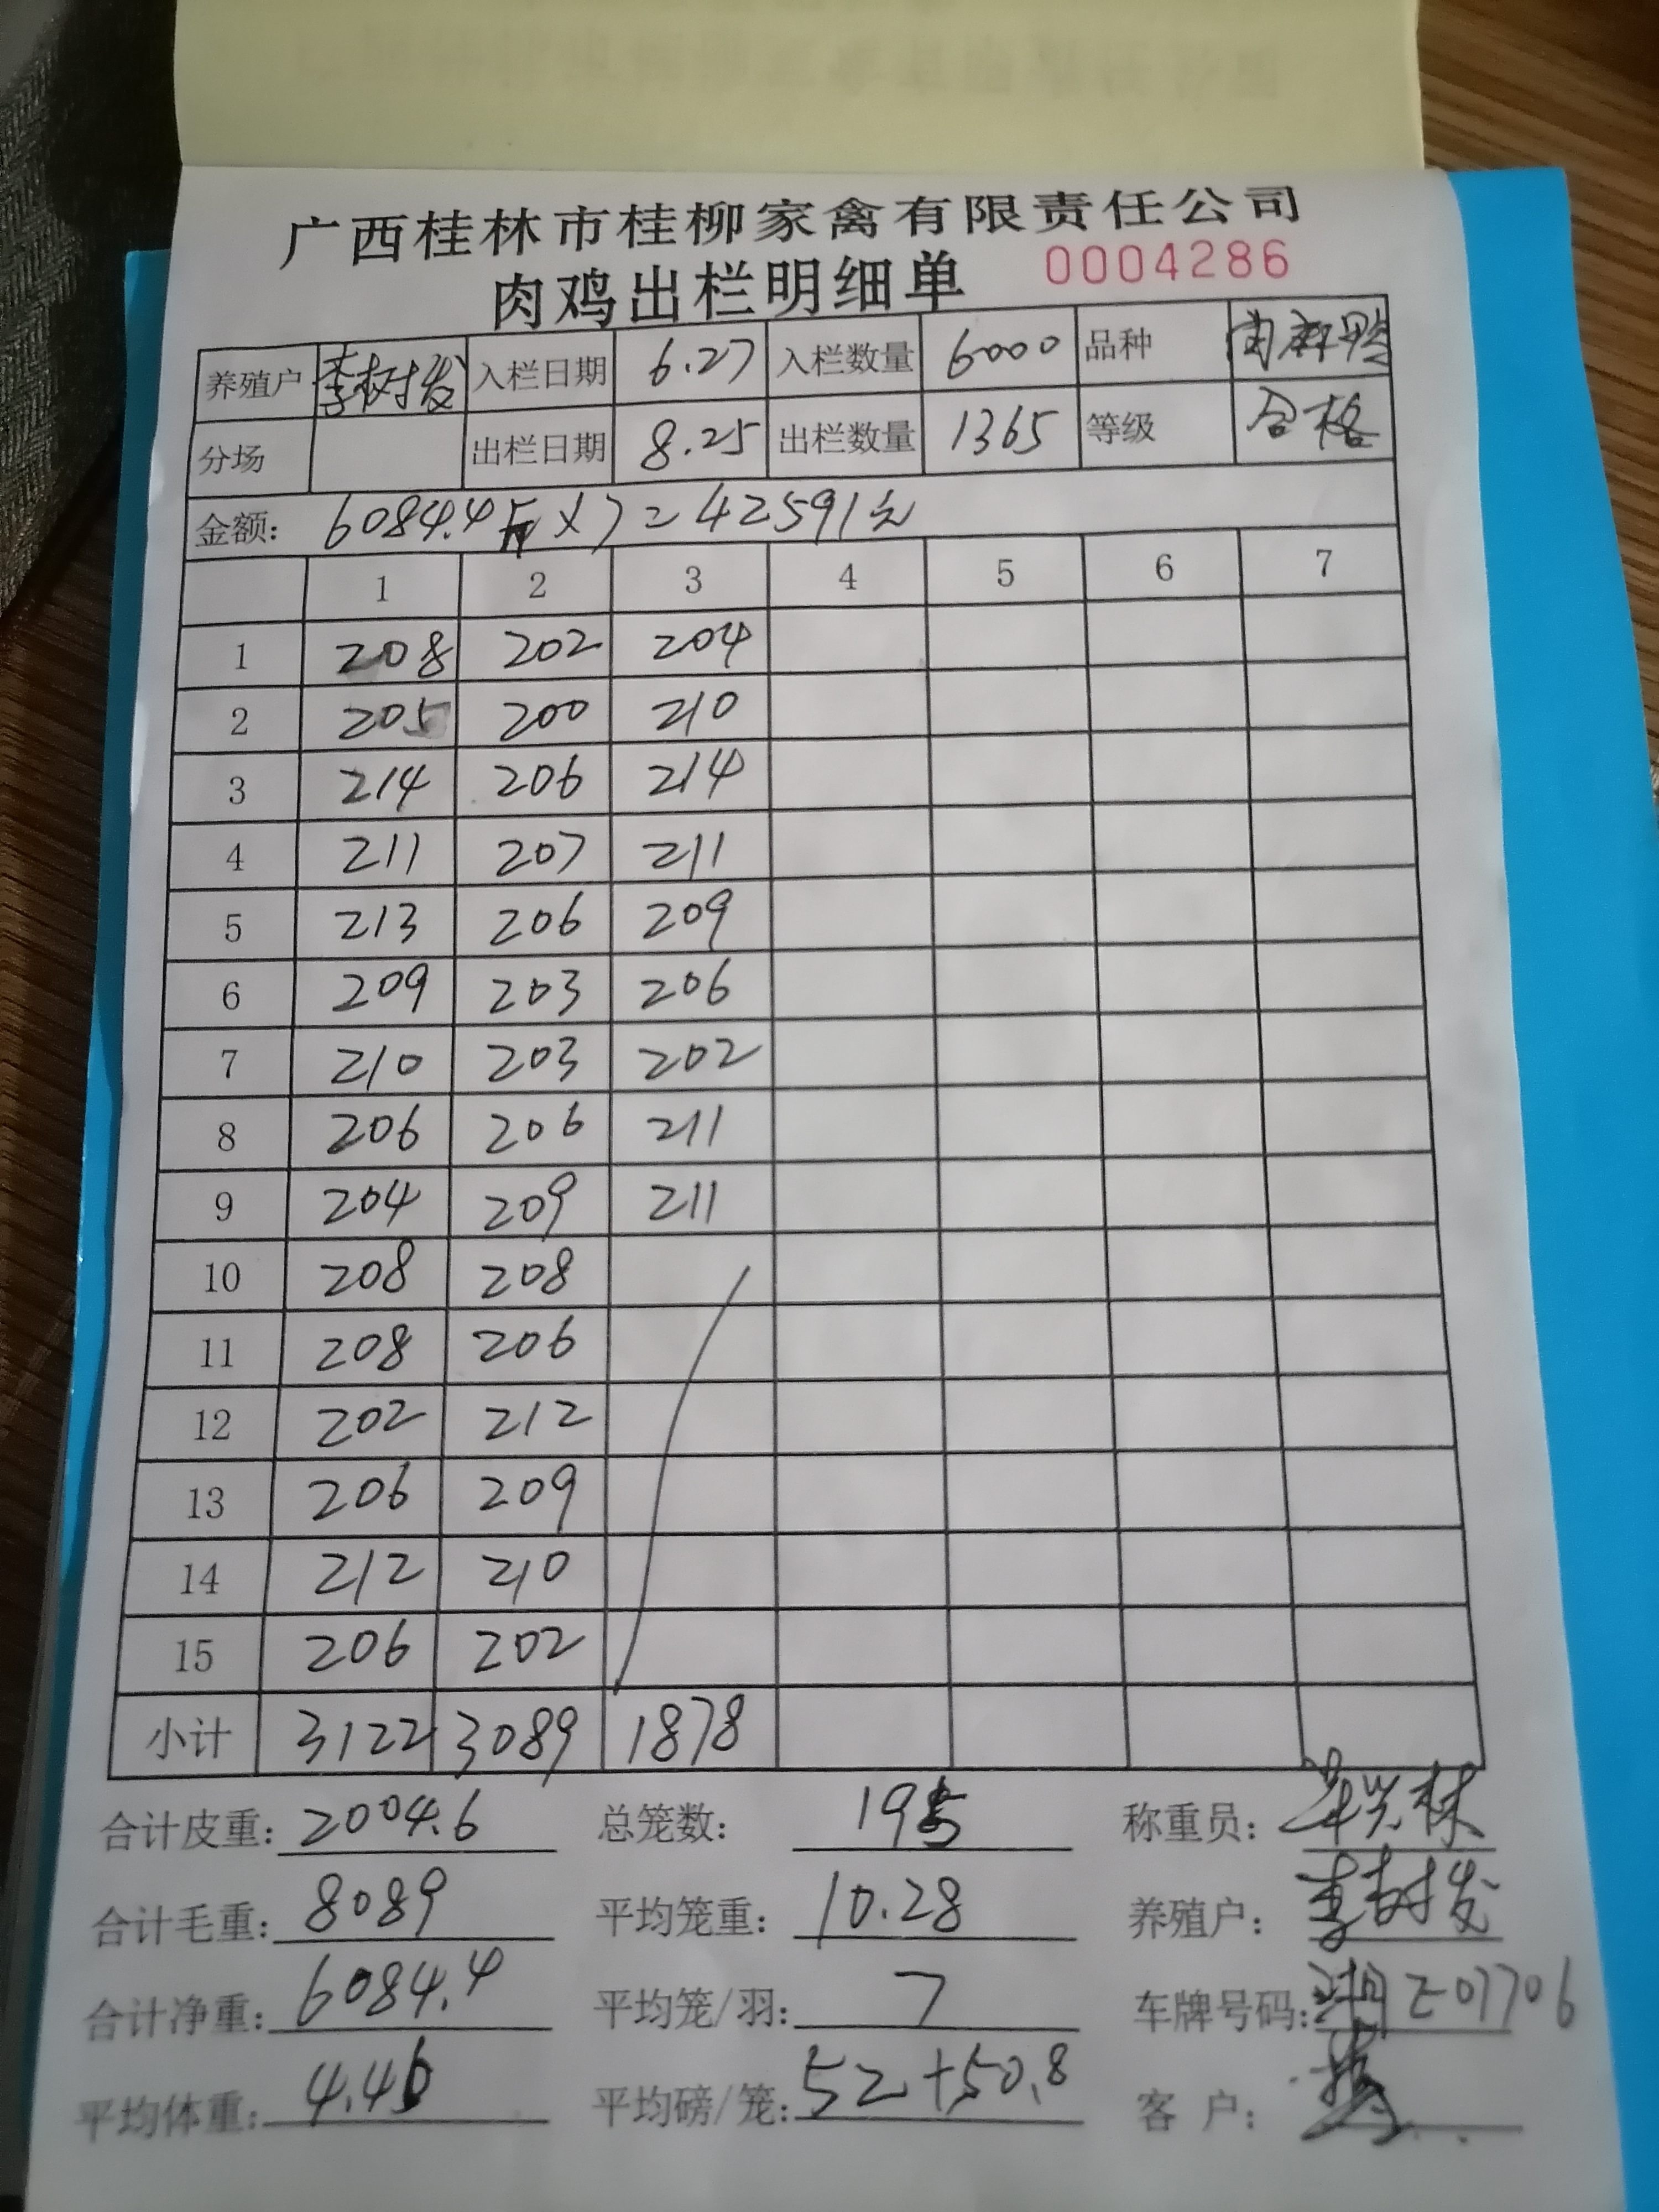 广西桂林市桂柳家禽有限责任公司
肉鸡出栏明细单 0004286
养殖户 李树发 入栏日期 6.27 入栏数量 6000 品种
分场 出栏日期 8.25 出栏数量 1365 等级 合格
金额: 6084.4斤×7=42591元
1 2 3 4 5 6 7
1 208 202 204
2 205 200 210
3 214 206 214
4 211 207 211
5 213 206 209
6 209 203 206
7 210 203 202
8 206 206 211
9 204 209 211
10 208 208
11 208 206
12 202 212
13 206 209
14 212 210
15 206 202
小计 3122 3089 1878
合计皮重: 2004.6 总笼数: 195 称重员:
合计毛重: 8089 平均笼重: 10.28 养殖户: 李树发
合计净重: 6084.4 平均笼/羽: 7 车牌号码: 湘Z07706
平均体重: 4.46 平均磅/笼: 52+50.8 客户: